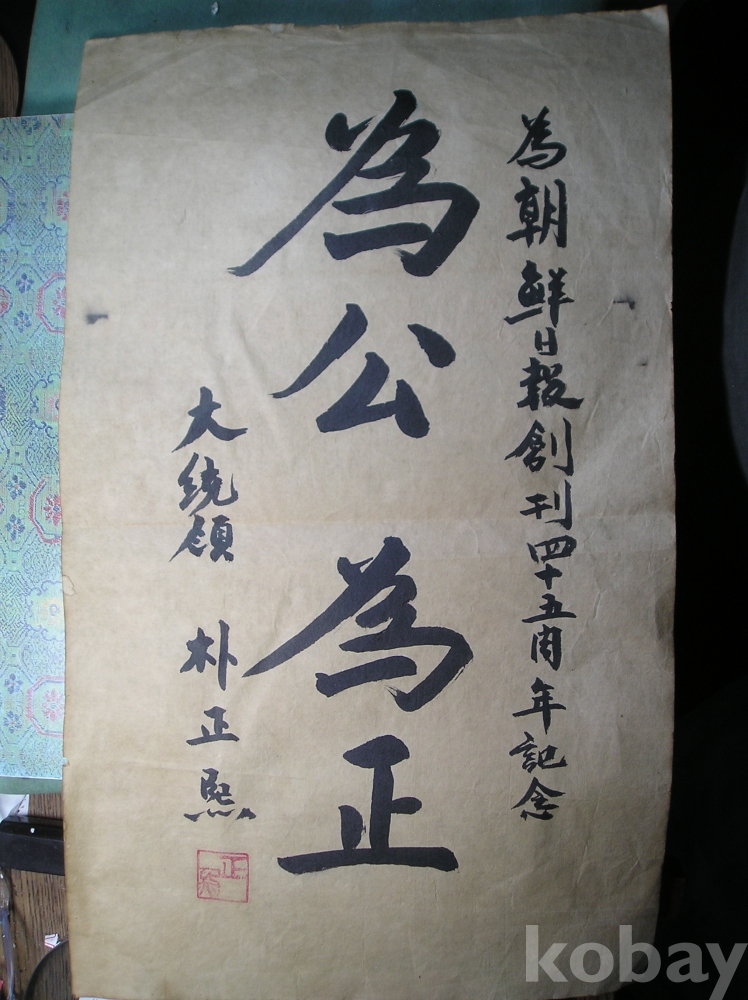 為朝鮮日報創刊四十五周年記念
為公為正
大統領 朴正熙
正熙
kobay